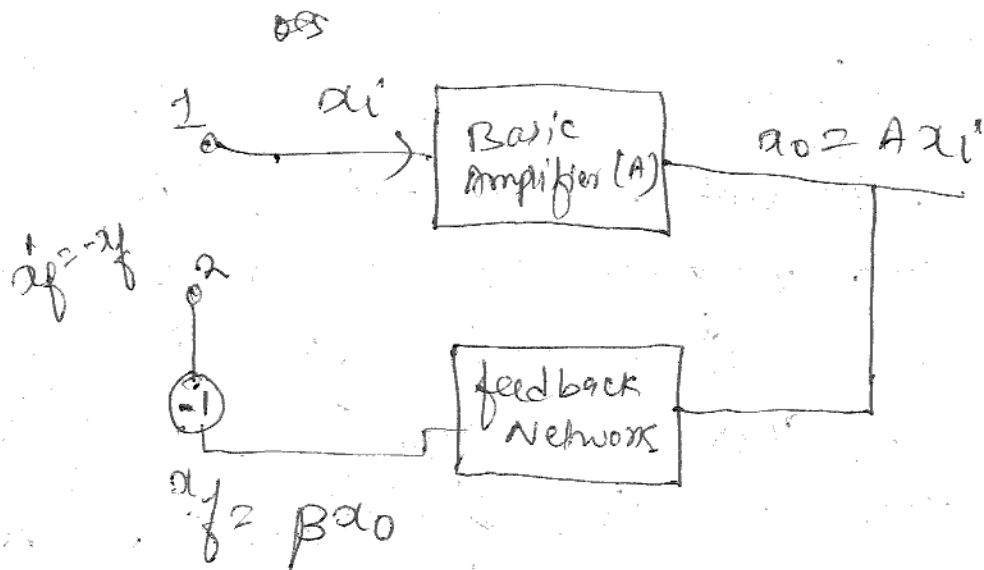 1
xi
Basic
Amplifier (A)
x0 = A xi
x'f = -xf
2
-1
feedback
Network
xf = βx0